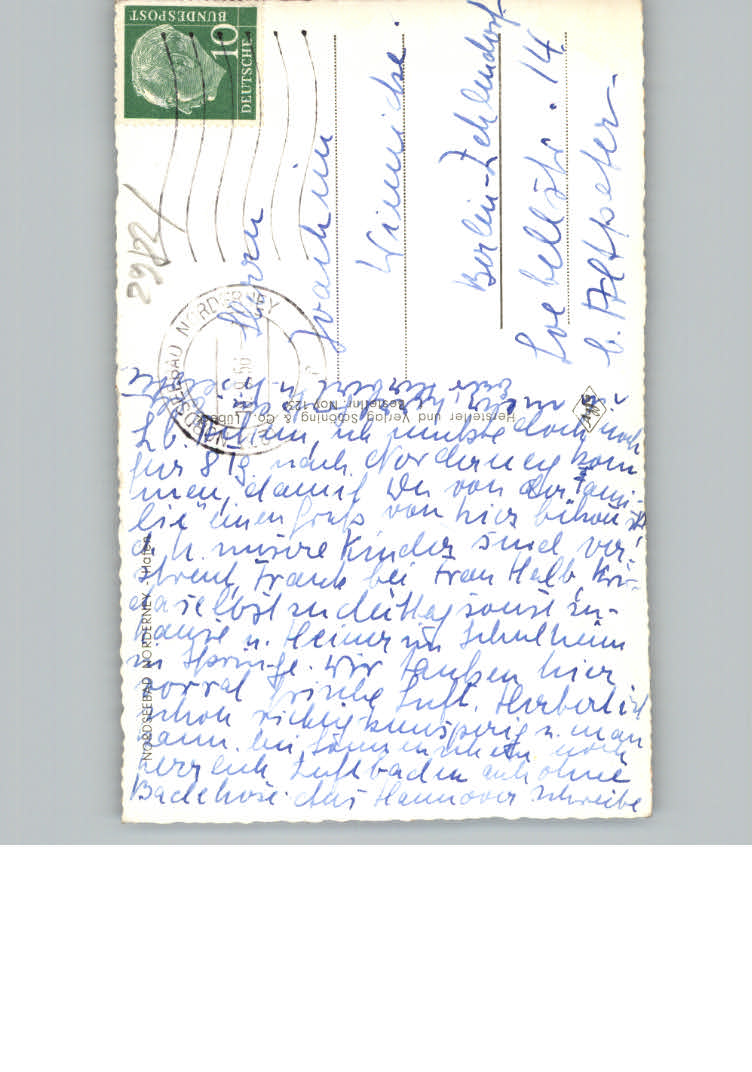 DEUTSCHE
BUNDESPOST
10
29/22
NORDSEEBAD NORDERNEY
Herrn
Joachim
Winniche.
Berlin-Zehlendorf
Loebellstr. 14.
b. Altpeter
Hersteller und Verlag Schöning & Co., Lübeck
Bestellnr. Noy 123
NORDSEEBAD NORDERNEY - Hafen
ich mußte doch noch
für 8 Tg. nach Norderney kom
men, damit Du von der Fami-
lie einen Gruß von hier
d. h. unsere Kinder sind ver-
streut, Frank bei Frau Halb,
selbst zu Mittag sonst zu-
hause u. Heiner im Schulheim
in Springe. Wir tanken hier
vorrat frische Luft. Herbert ist
schon richtig knusperig u. man
kann bei Sonnenschein noch
herrlich Luftbaden auch ohne
Badehose. Aus Hannover schreibe